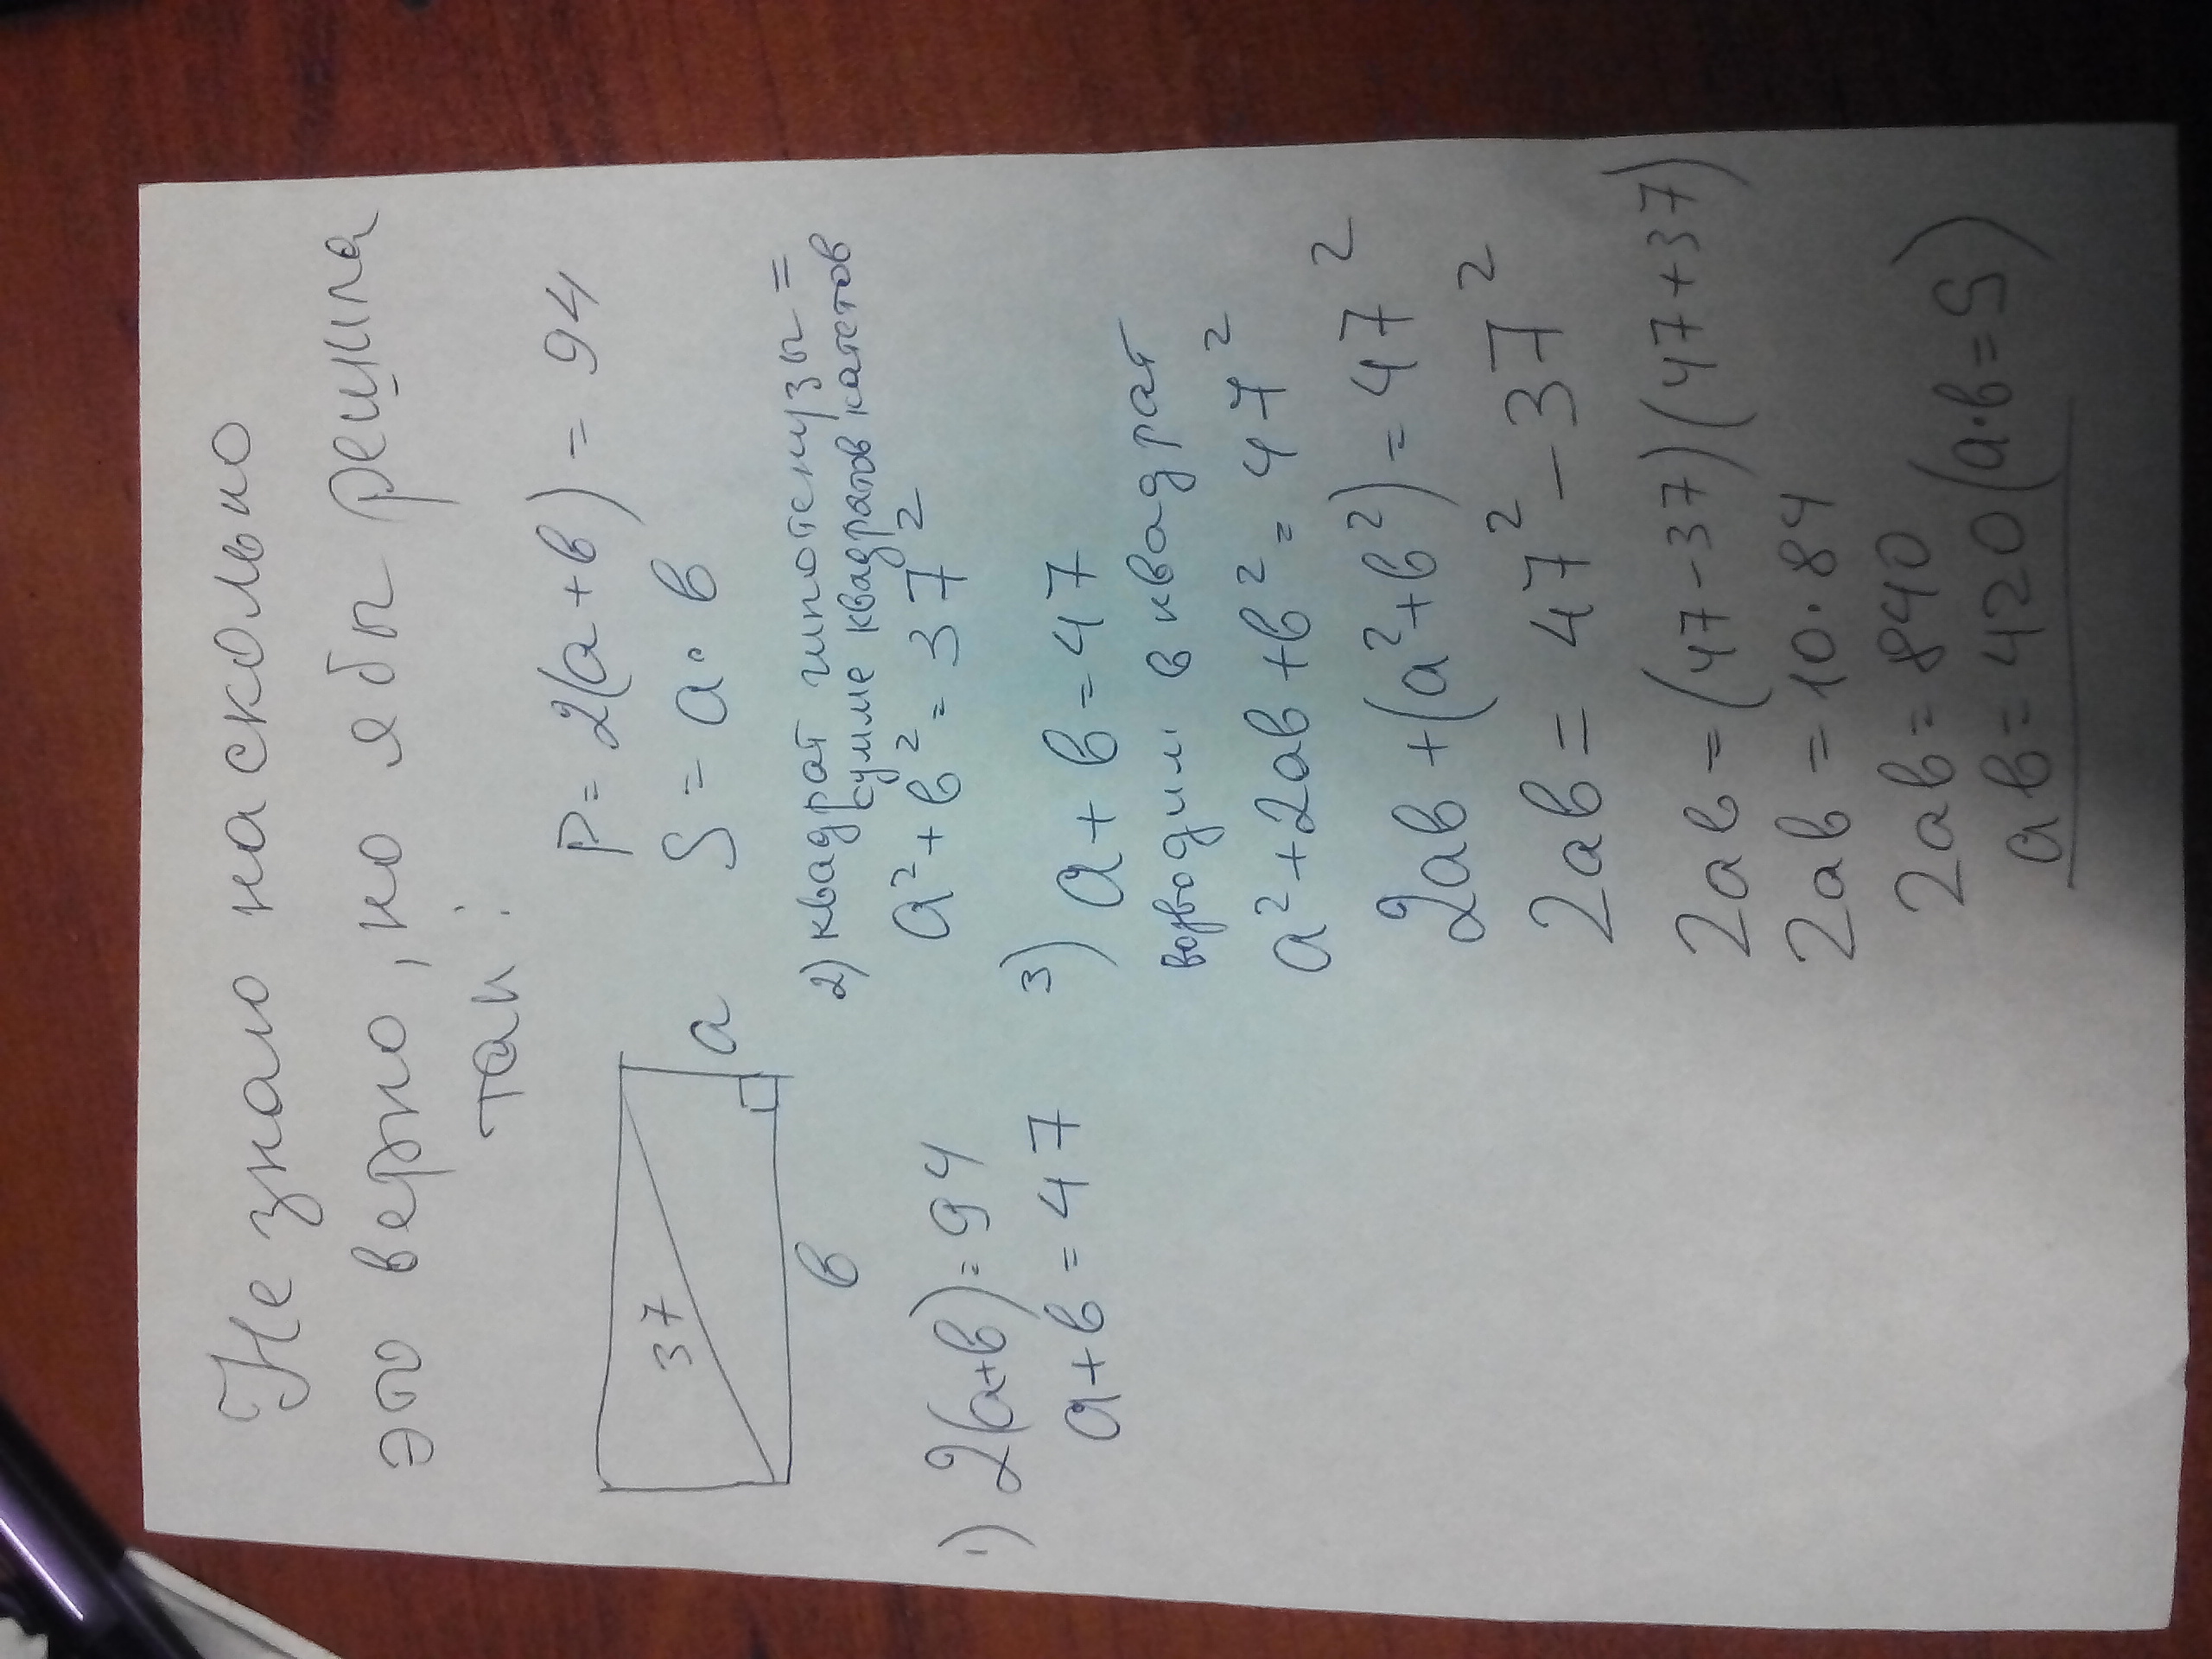 Не знаю насколько
это верно, но я бы решила
так:
P = 2(a+в) = 94
S = a · в
37
a
в
1) 2(a+в) = 94
a+в = 47
2) квадрат гипотенузы =
сумме квадратов катетов
a² + в² = 37²
3) a + в = 47
возводим в квадрат
a² + 2aв + в² = 47²
2aв + (a² + в²) = 47²
2aв = 47² - 37²
2aв = (47 - 37)(47 + 37)
2aв = 10 · 84
2aв = 840
aв = 420 (a·в = S)